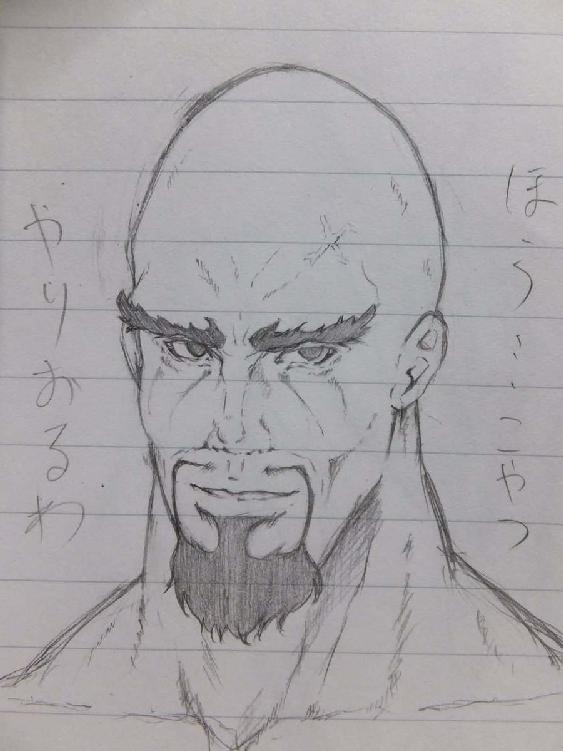 ほう・・・こやつ
やりおるわ